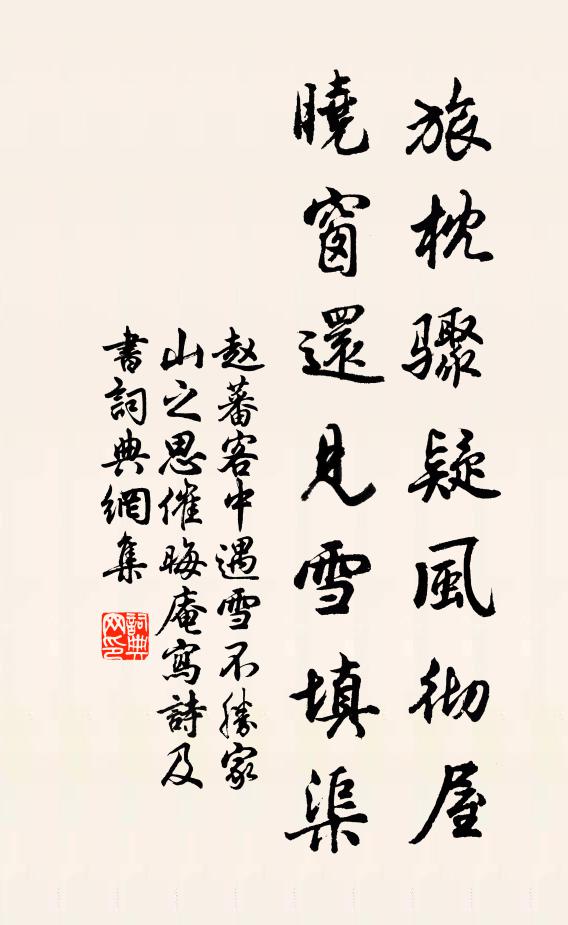 旅枕驟疑風彻屋
曉窗還見雪填渠
赵蕃客中遇雪不勝家
山之思催晦庵寫詩及
書詞典網集
詞典网印